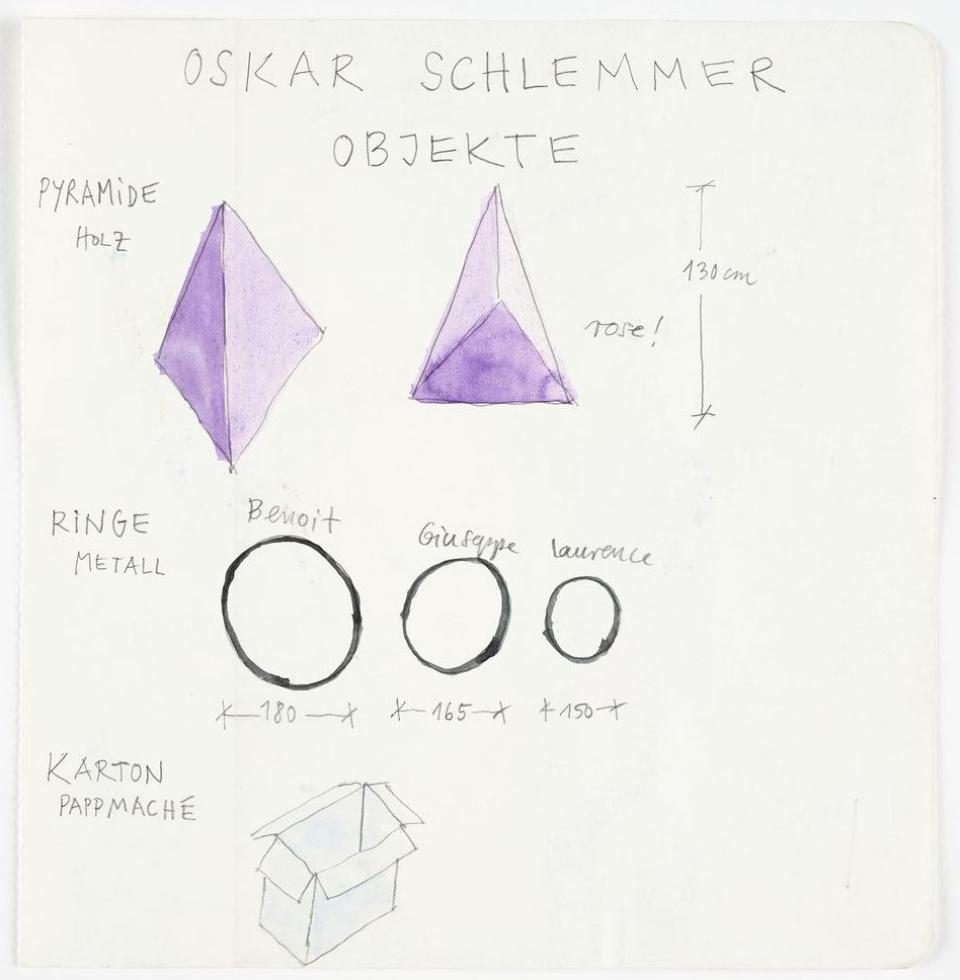 OSKAR SCHLEMMER
OBJEKTE
PYRAMIDE
HOLZ
130 cm
rose!
RINGE
METALL
Benoit
Giuseppe
laurence
180
165
150
KARTON
PAPPMACHÉ